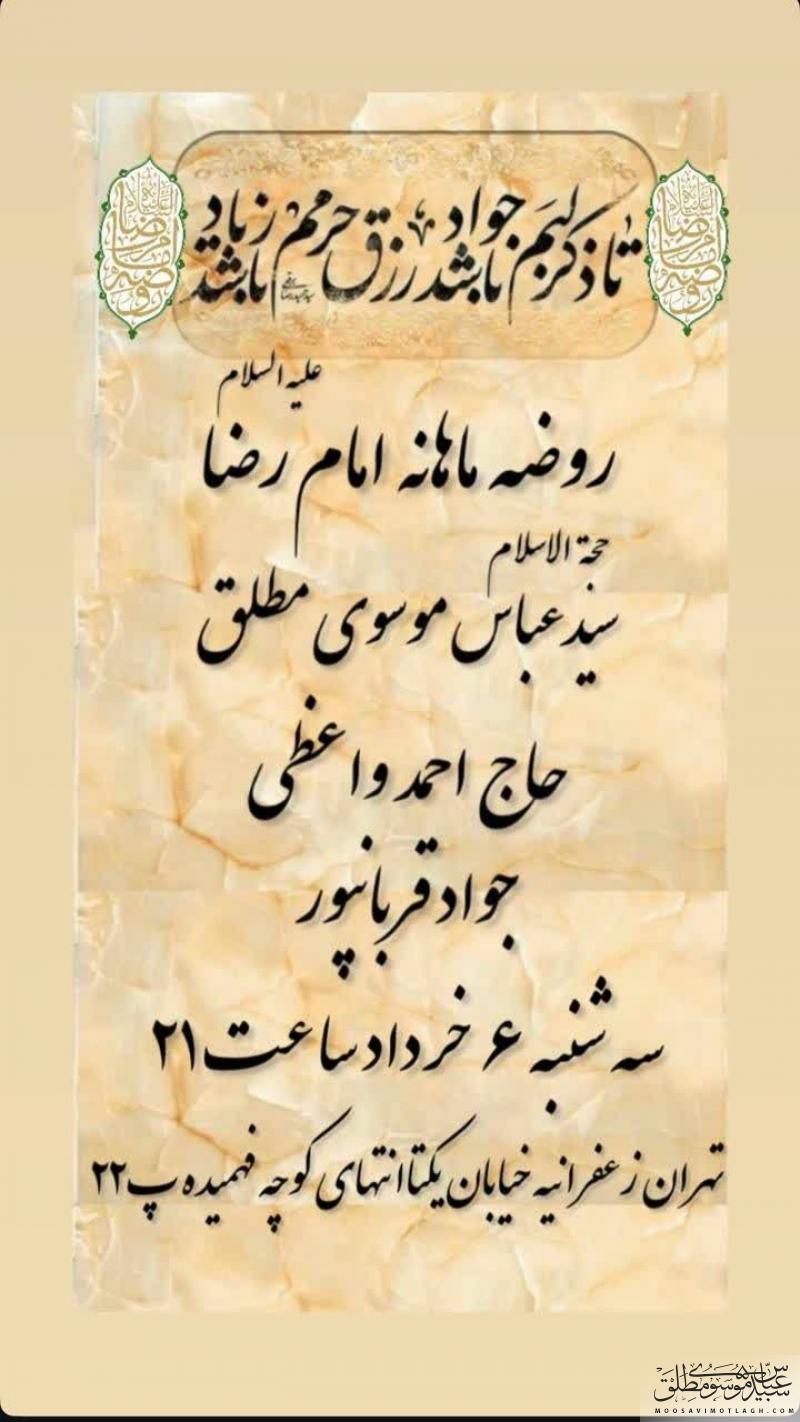 تا ذکر لبم جواد باشد رزق حرمم زیاد باشد
روضه امام رضا علیه السلام
روضه امام رضا علیه السلام
علیه السلام
روضه ماهانه امام رضا
حجة الاسلام
سید عباس موسوی مطلق
حاج احمد واعظی
جواد قربانپور
سه شنبه ۶ خرداد ساعت ۲۱
تهران زعفرانیه خیابان یکتا انتهای کوچه فهمیده پ ۲۲
سید عباس موسوی مطلق
MOOSAVIMOTLAGH.COM